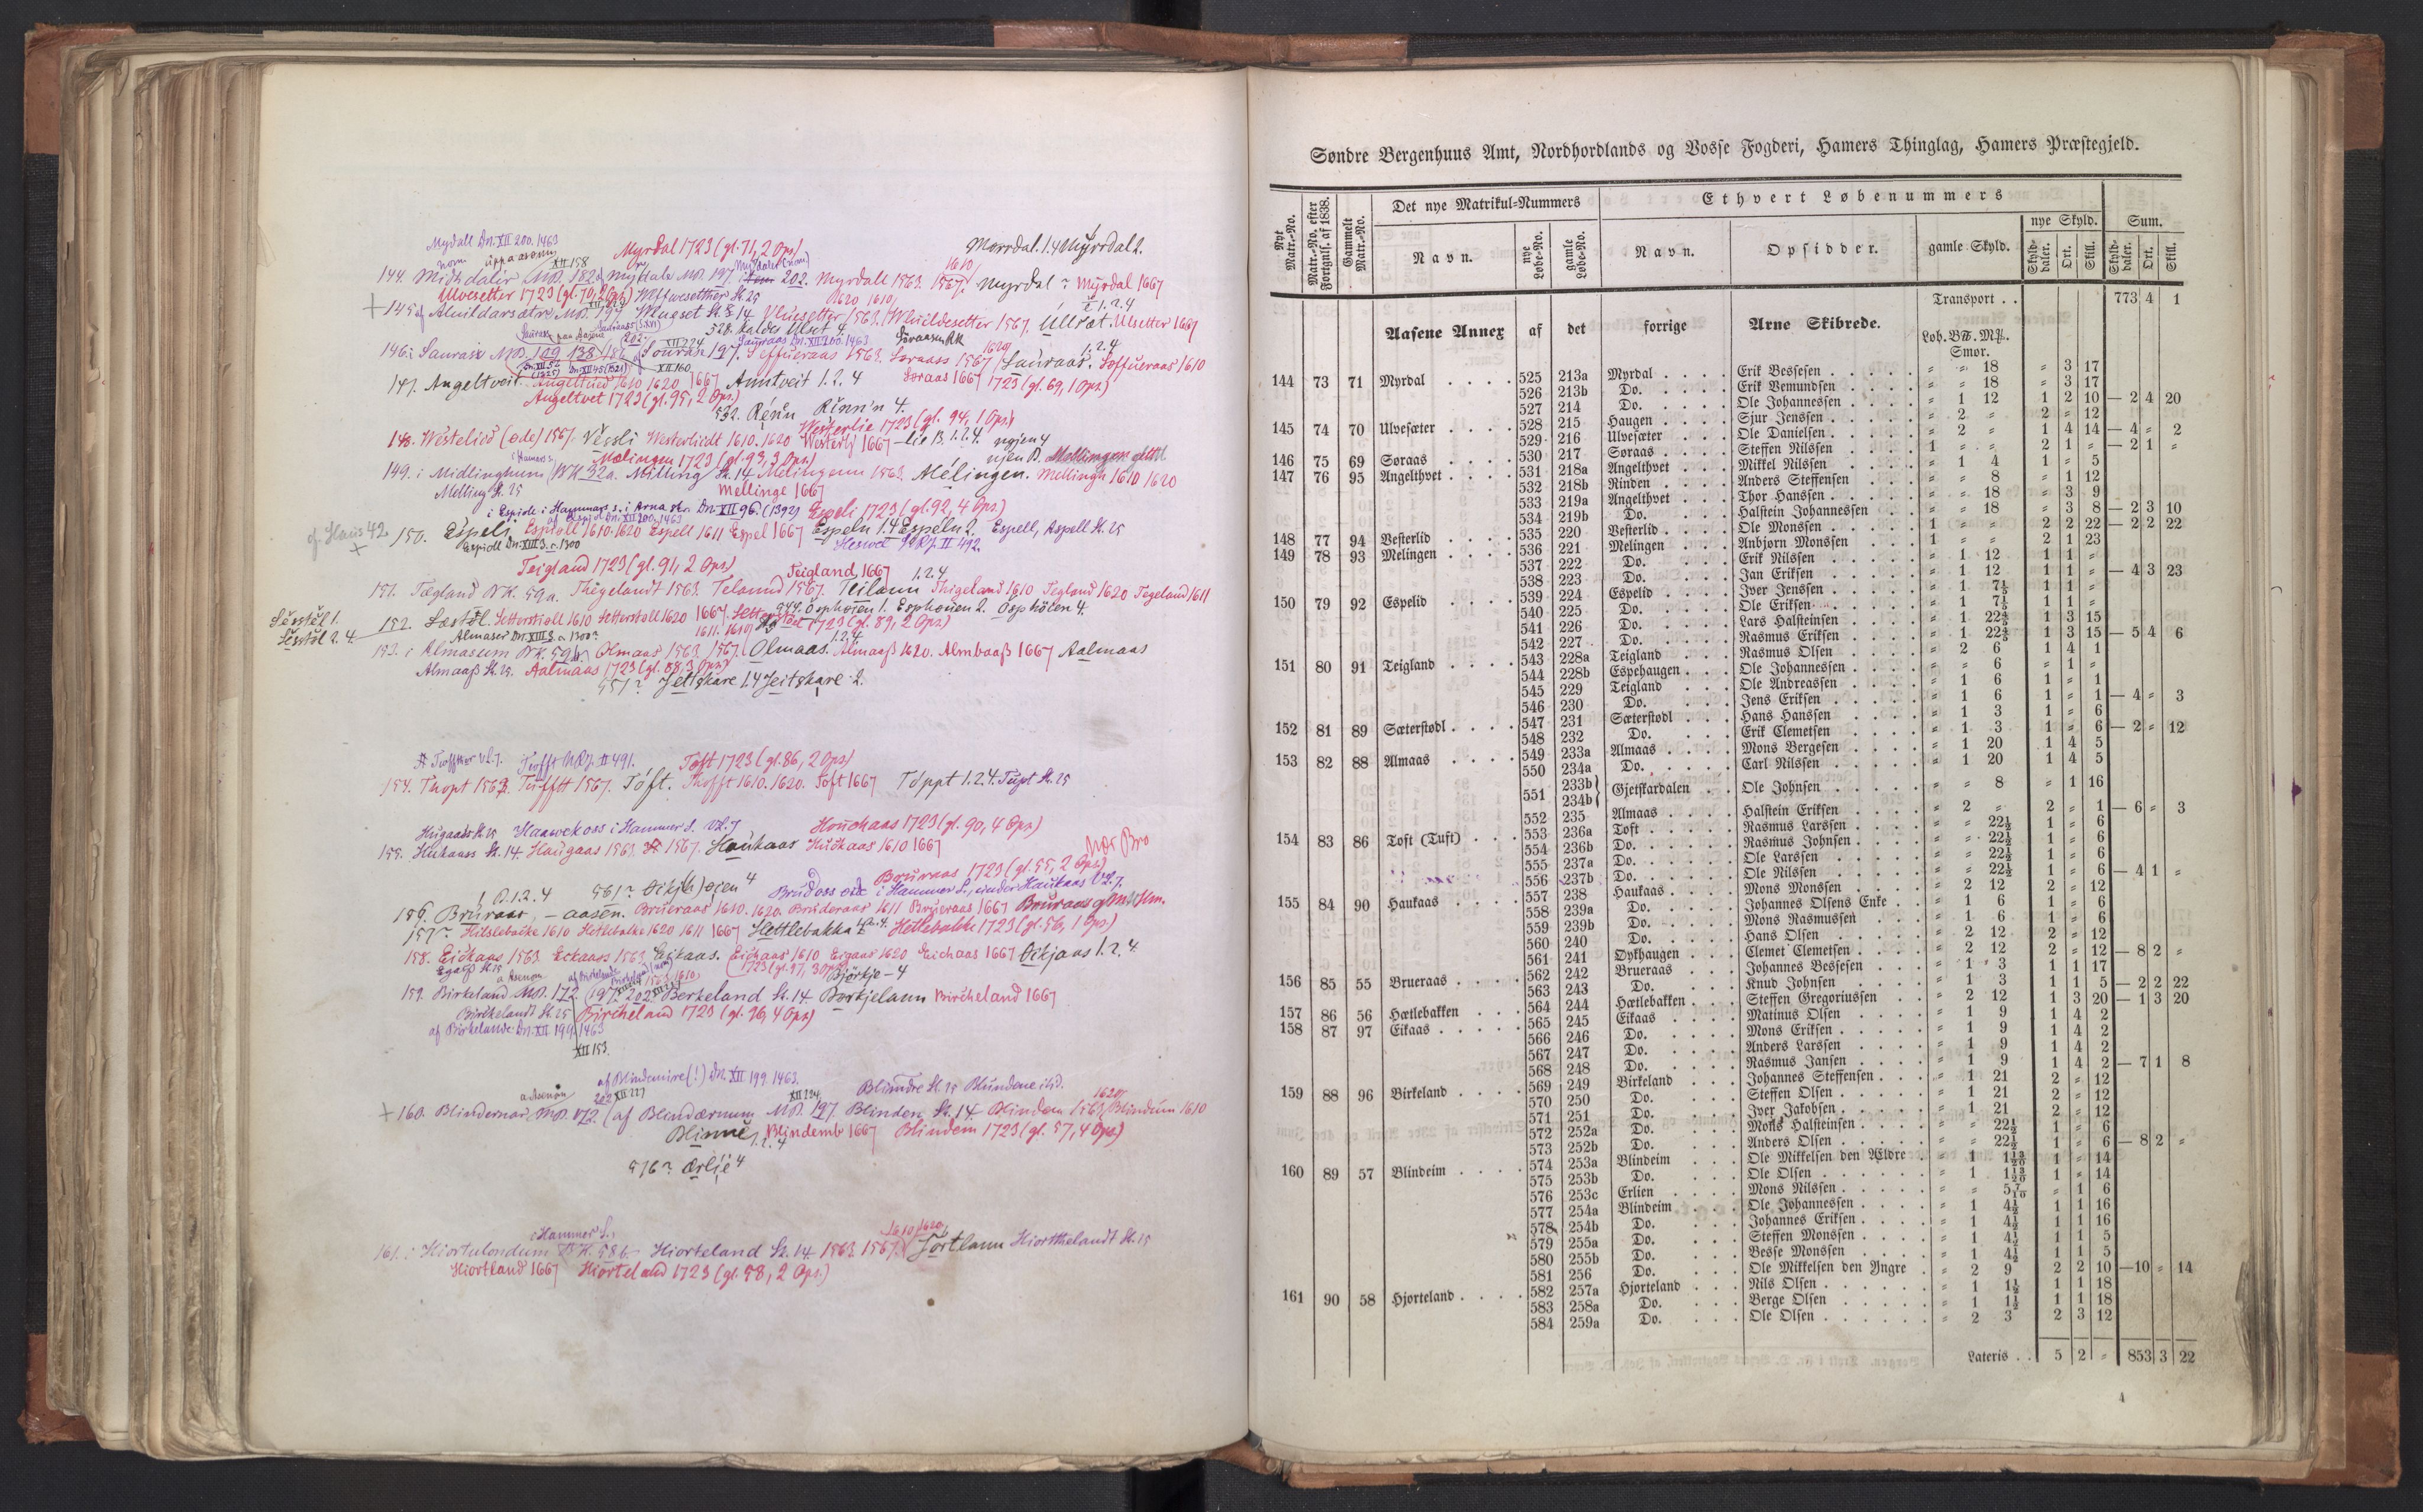 Mydall Dn. XII 200. 1463
Myrdal 1723 (gl. 71, 2 Ops)
Morrdal. 1.4 Myrrdal 2.
144. Myrdale MP. 197 202. Myrdall 1563. 1567. Myrdal ? Myrdal 1667
Ulvesetter 1723 (gl. 70, 2 Ops)
+ 145. Alvildarsætr St. 14 Vluesetter 1563. 1567. Ullsæt. Ulsetter 1667
528. kaldes Ulset 4
146. i Saurase MP. 109 138 Sourase 197. Seffueraas 1563. Soraass 1567 Sauraas. Soffueraas 1610
Soraas 1667 1723 (gl. 69, 1 Ops)
147. Angeltveit. Angeltued 1610 1620 1667 Anntveit 1.2.4
Angeltvet 1723 (gl. 95, 2 Ops)
532. Rénn Rinn'n 4.
Westerlie 1723 (gl. 94, 1 Ops)
148. Westelied (øde) 1567. Vessli Westerliedt 1610. 1620 Westerlj 1667 – lie B. 1.2.4.
Melingen 1723 (gl. 93, 3 Ops)
149. i Midlinghum BK 32a. Midling St. 14 Melingenn 1563. Melingen. Mellingh 1610 1620
Melling St. 25 Mellinge 1667
i Espiole i Hammars s. i Arna skr. Dn. XII 96. (1392) Espeli 1723 (gl. 92, 4 Ops)
cf. Haus 42
+ 150. Espeli. Espioll 1610. 1620 Espell 1611 Espel 1667 Espeln 1.4 Espeln 2. Espell, Aspell St. 25
Espioll Dn. XIII 3. c. 1300 NRJ. II 492.
Teigland 1723 (gl. 91, 2 Ops) Teigland 1667 1.2.4
151. Tægland BK. 59a. Thegelandt 1563. Telannd 1567. Teilann Thigeland 1610 Tegland 1620 Tegeland 1611
Sésstèl 1.
Sésstöl 2. 4
152. Sæstöl. Setterstioll 1610 Setterstoll 1620 1667 1723 (gl. 89, 2 Ops)
544. Ösphouen 1. Esphouen 2. Ösphölen 4.
Almaser Dn. XIII 3. c. 1300 ? 1.2.4
153. i Almasum BK. 59b. Olmaas 1563. 1567. Olmaas. Almaass 1620. Almbaass 1667 Aalmaas
Almaass St. 25. Aalmaas 1723 (gl. 88, 3 Ops)
551 ? Jettskare 1.4 Jeitskare 2.
Tofft NRJ. II 491. Toft 1723 (gl. 86, 2 Ops)
154. Thopt 1563. Tufftt 1567. Tóft. Thofft 1610. 1620. Toft 1667 Toppt 1.2.4. Tupt St. 25
Hugaass St. 25 Haawekoss i Hammer S. Vel. 7 Houchaas 1723 (gl. 90, 4 Ops)
155. Hukaass St. 14. Haugaas 1563. 1567. Haukaas Huchaas 1610 1667
nær Bro
Bruraas 1723 (gl. 55, 2 Ops)
561 ? Öikje(h)ojen 4 Brudoss øde i Hammer S., under Haukaas Vel. 7.
156. Bruraas, – aasén. Brueraas 1610. 1620. Bruderaas 1611 Brueraas 1667
157 ? Hitslebacke 1610 Hetlebacke 1620 1611 1667 Hettlebakka 1.2.4. Hetlebakke 1723 (gl. 56, 1 Ops)
158. Eickaas 1563. Eckaass 1563, Eikaas. Eichaas 1610 Ergaas 1620 Eichaas 1667 Öikjaas 1.2.4
1723 (gl. 97, 3 Ops) Björkje – 4
159. Birkeland MP. 172. (197 202 Berkeland St. 14 Borkjelann Bircheland 1667
Birchelandt St. 25 Bircheland 1723 (gl. 96, 4 Ops)
af Birkelande Dn. XII 199 1463
XII 153.
af Blindemire (!) Dn. XII 199. 1463.
Blindre St. 25 Blundene ibid.
+ 160. Blindernar MP. 172. (af Blindærnum MP. 197. Blinden St. 14 Blindem 1563 Blindum 1610
Blinne 1.2.4 Blindemb 1667 Blindem 1723 (gl. 57, 4 Ops)
576 ? Ærlié 4
i Hammer S.
161. i Hiortulondum BK. 58b – Hiorteland St. 14. 1563. 1567. Jortlann Hiortthelandt St. 25
Hiortland 1667 Hiorteland 1723 (gl. 58, 2 Ops.)
Søndre Bergenhuus Amt, Nordhordlands og Vosse Fogderi, Hamers Thinglag, Hamers Præstegjeld.
Nyt Matr.-No. Matr.-No. efter Fortegnelf. af 1838. Gammelt Matr.-No. Det nye Matrikul-Nummers Ethvert Løbenummers
Navn. nye Løbe-No. gamle Løbe-No. Navn. Opsidder. gamle Skyld. nye Skyld. Sum.
Skyld-daler. Ort. Skill. Skyld-daler. Ort. Skill.
Transport . . 773 4 1
Aasene Annex af det forrige Arne Skibrede. Løb. B℔. M℔. Smør.
144 73 71 Myrdal . . . . 525 213a Myrdal . . . . Erik Bessesen . . . . . " " 18 " 3 17
526 213b Do. . . . . Erik Vemundsen . . . . " " 18 " 3 17
527 214 Do. . . . . Ole Johannessen . . . . " 1 12 1 2 10 — 2 4 20
145 74 70 Ulvesæter . . . . 528 215 Haugen . . . . Sjur Jenssen . . . . . " 2 " 2 " 12
529 216 Ulvesæter . . . Ole Danielsen . . . . . " 2 " 1 4 14 — 4 " 2
146 75 69 Søraas . . . . 530 217 Søraas . . . . Steffen Nilssen . . . . 1 " " 2 1 " — 2 1 "
147 76 95 Angelthvet . . . . 531 218a Angelthvet . . . Mikkel Nilssen . . . . " 1 4 1 " 5
532 218b Rinden . . . . Anders Steffensen . . . " " 8 " 1 12
533 219a Angelthvet . . . Thor Hanssen . . . . . " " 18 " 3 9
534 219b Do. . . . . Halstein Johannessen . . " " 18 " 3 8 — 2 3 10
148 77 94 Vesterlid . . . . 535 220 Vesterlid . . . . Ole Monssen . . . . . 1 " " 2 2 22 — 2 2 22
149 78 93 Melingen . . . . 536 221 Melingen . . . . Anbjørn Monssen . . . 1 " " 2 1 23
537 222 Do. . . . . Erik Nilssen . . . . . " 1 12 1 1 "
538 223 Do. . . . . Jan Eriksen . . . . . " 1 12 1 1 " — 4 3 23
150 79 92 Espelid . . . . 539 224 Espelid . . . . Iver Jenssen . . . . . " 1 7⅕ 1 1 "
540 225 Do. . . . . Ole Eriksen . . . . . " 1 7⅕ 1 1 "
541 226 Do. . . . . Lars Halsteinsen . . . . " 1 22⅘ 1 3 15
542 227 Do. . . . . Rasmus Eriksen . . . . " 1 22⅘ 1 3 15 — 5 4 6
151 80 91 Teigland . . . . 543 228a Teigland . . . Rasmus Olsen . . . . " 2 6 1 4 1
544 228b Espehaugen . . . Ole Johannessen . . . . " " 6 " 1 "
545 229 Teigland . . . Ole Andreassen . . . . " 1 6 1 " 1
546 230 Do. . . . . Jens Eriksen . . . . . " 1 6 1 " 1 — 4 " 3
152 81 89 Sæterstødl . . . . 547 231 Sæterstødl . . . Hans Hanssen . . . . " 1 3 1 " 6
548 232 Do. . . . . Erik Clemetsen . . . . " 1 3 1 " 6 — 2 " 12
153 82 88 Almaas . . . . 549 233a Almaas . . . . Mons Bergesen . . . . " 1 20 1 4 5
550 234a Do. . . . . Carl Nilssen . . . . . " 1 20 1 4 5
551 233b 234b } Gjetskardalen . . Ole Johnsen . . . . . " " 8 " 1 16
552 235 Almaas . . . . Halstein Eriksen . . . . " 2 " 2 " 1 — 6 " 3
154 83 86 Toft (Tuft) . . . 553 236a Toft . . . . . Rasmus Larssen . . . . " " 22½ 1 " 6
554 236b Do. . . . . Rasmus Johnsen . . . . " " 22½ 1 " 6
555 237a Do. . . . . Ole Larssen . . . . . " " 22½ 1 " 6
556 237b Do. . . . . Ole Nilssen . . . . . " " 22½ 1 " 6 — 4 1 "
155 84 90 Haukaas . . . . 557 238 Haukaas . . . . Mons Monssen . . . . " 2 12 2 " 12
558 239a Do. . . . . Johannes Olsens Enke . . " 1 6 1 " 6
559 239b Do. . . . . Mons Rasmussen . . . " 1 6 1 " 6
560 240 Do. . . . . Hans Olsen . . . . . " 2 12 2 " 12
561 241 Øykhaugen . . . Clemet Clemetsen . . . . " 2 12 2 " 12 — 8 2 "
156 85 55 Brueraas . . . . 562 242 Brueraas . . . Johannes Bessesen . . . " 1 3 1 1 17
563 243 Do. . . . . Knud Johnsen . . . . " 1 3 1 1 5 — 2 2 22
157 86 56 Hætlebakken . . . 564 244 Hætlebakken . . . Steffen Gregoriussen . . " 2 12 1 3 20 — 1 3 20
158 87 97 Eikaas . . . . . 565 245 Eikaas . . . . Matinus Olsen . . . . " 1 9 1 4 2
566 246 Do. . . . . Mons Eriksen . . . . . " 1 9 1 4 2
567 247 Do. . . . . Anders Larssen . . . . " 1 9 1 4 2
568 248 Do. . . . . Rasmus Jansen . . . . " 1 9 1 4 2 — 7 1 8
159 88 96 Birkeland . . . . 569 249 Birkeland . . . Johannes Steffensen . . . " 1 21 2 " 12
570 250 Do. . . . . Steffen Olsen . . . . . " 1 21 2 " 12
571 251 Do. . . . . Iver Jakobsen . . . . . " 1 21 2 " 12
572 252a Do. . . . . Mons Halsteinsen . . . . " " 22½ 1 " 6
573 252b Do. . . . . Anders Olsen . . . . . " " 22½ 1 " 6 — 8 2 "
160 89 57 Blindeim . . . . 574 253a Blindeim . . . Ole Mikkelsen den Ældre . " 1 1 13/20 1 " 14
575 253b Do. . . . . Ole Olsen . . . . . . " 1 1 13/20 1 " 14
576 253c Erlien . . . . Mons Nilssen . . . . . " " 5 7/10 " 1 6
577 254a Blindeim . . . Ole Johannessen . . . . " 1 4½ 1 1 16
578 254b Do. . . . . Johannes Eriksen . . . . " 1 4½ 1 1 16
579 255a Do. . . . . Steffen Monssen . . . . " 1 4½ 1 1 5
580 255b Do. . . . . Besse Monssen . . . . " 1 4½ 1 1 5
581 256 Do. . . . . Ole Mikkelsen den Yngre . " 2 9 2 2 10 —10 " 14
161 90 58 Hjorteland . . . . 582 257a Hjorteland . . . Nils Olsen . . . . . . " 1 1½ 1 1 18
583 258a Do. . . . . Berge Olsen . . . . . " 1 1½ 1 1 18
584 259a Do. . . . . Ole Olsen . . . . . . " 2 3 2 3 12
Lateris . . 5 2 " 853 3 22
4